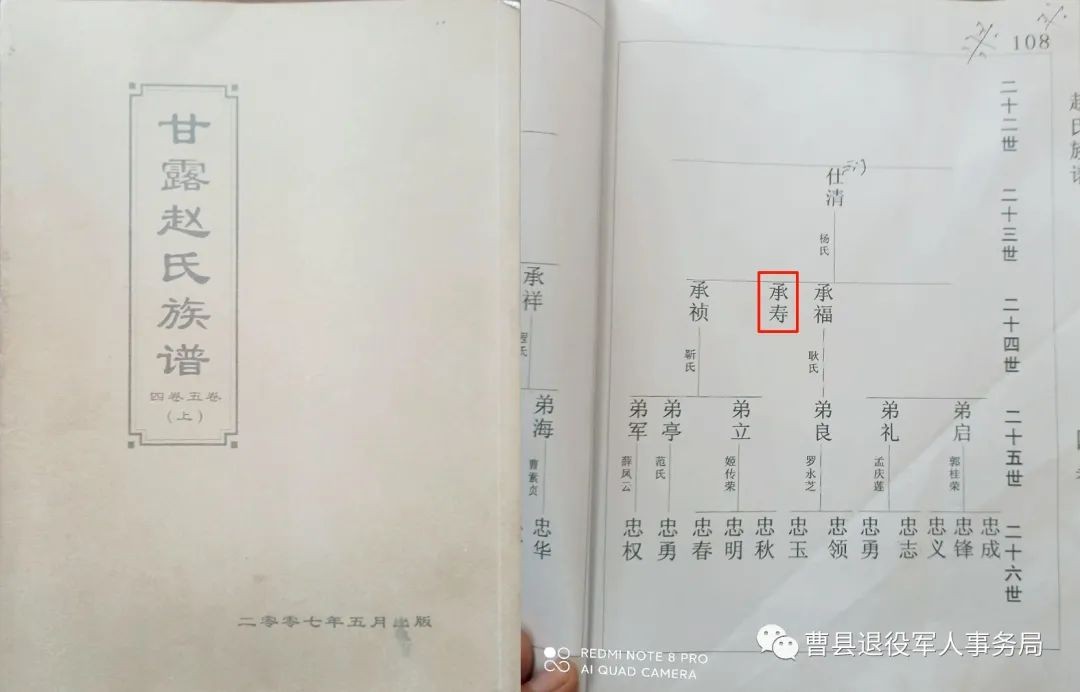 甘露赵氏族谱
四卷五卷
(上)
二零零七年五月出版
承祥
弟海
曹素贞
忠华
108
二十二世
二十三世
二十四世
二十五世
二十六世
仕清
杨氏
承祯
承寿
承福
靳氏
耿氏
弟军
弟亭
弟立
弟良
弟礼
弟启
薛凤云
范氏
姬传荣
罗永芝
孟庆莲
郭桂荣
忠权
忠勇
忠春
忠明
忠秋
忠玉
忠领
忠勇
忠志
忠义
忠锋
忠成
REDMI NOTE 8 PRO
AI QUAD CAMERA
曹县退役军人事务局